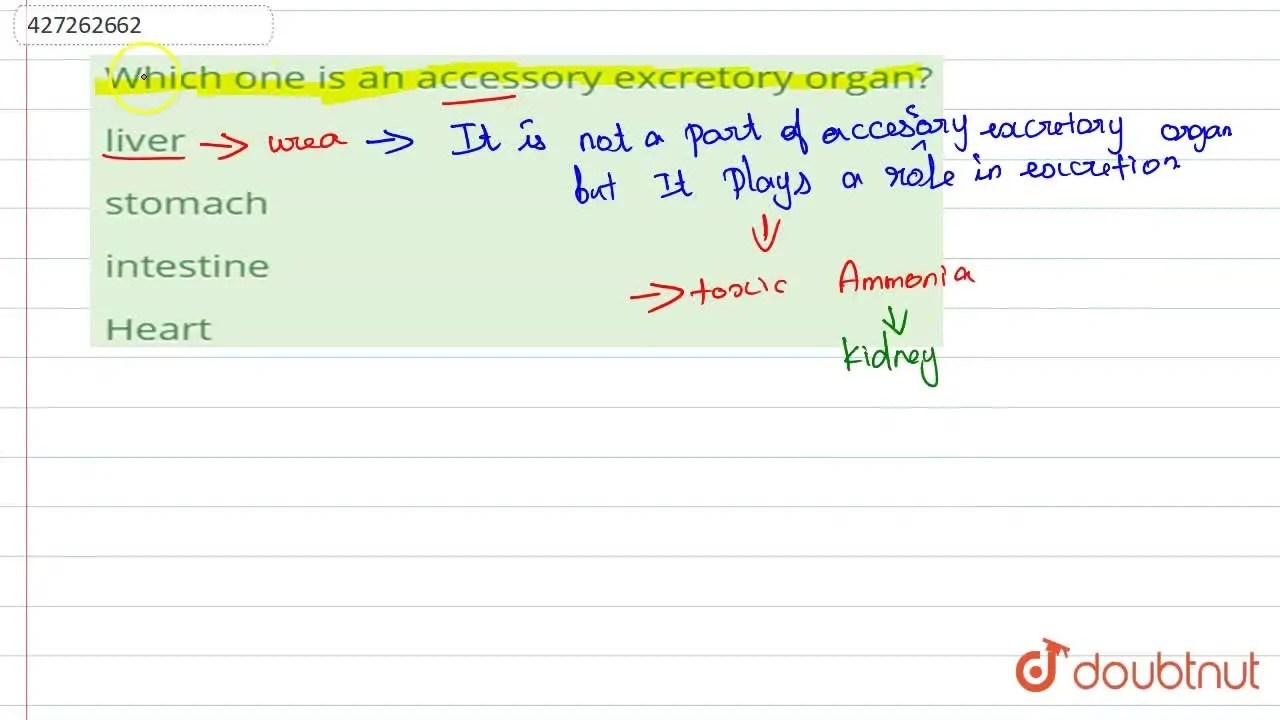 427262662
Which one is an accessory excretory organ?
liver → urea → It is not a part of accessory excretory organ
but It Plays a role in excretion
stomach
→ toxic Ammonia
intestine
Heart
Kidney
doubtnut